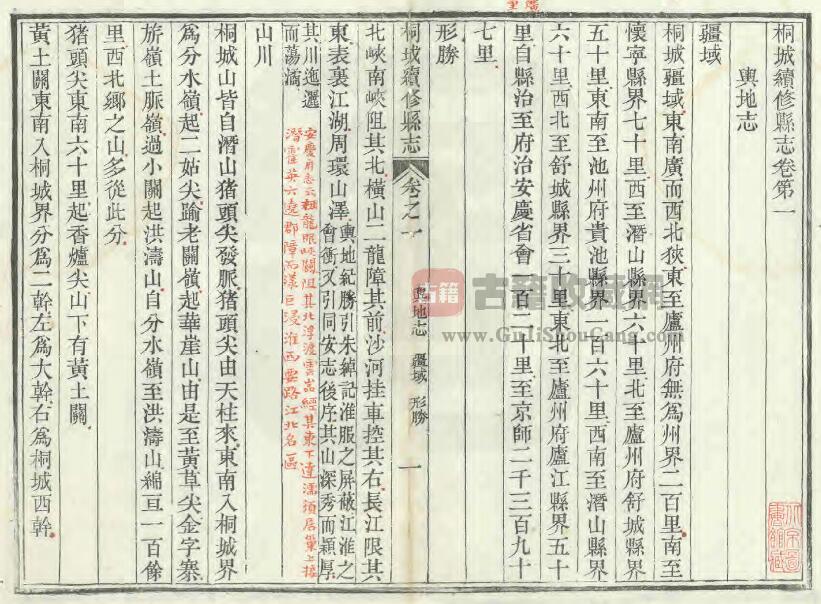 桐城續修縣志卷第一
輿地志
疆域
桐城疆域東南廣而西北狹東至廬州府無為州界二百里南至
懷寧縣界七十里西至潛山縣界六十里北至廬州府舒城縣界
五十里東南至池州府貴池縣界一百六十里西南至潛山縣界
六十里西北至舒城縣界三十里東北至廬州府廬江縣界五十
里自縣治至府治安慶省會一百二十里至京師二千三百九十
七里
形勝
桐城續修縣志 卷之一 輿地志 疆域 形勝 一
北峽南峽阻其北橫山二龍障其前沙河挂車控其右長江限其
東表裏江湖周環山澤輿地紀勝引朱綽記淮服之屏蔽江淮之
會衝又引同安志後序其山深秀而穎厚
其川迤邐
而蕩潏
安慶府志云祖龍眠峽關阻其北浮渡雲嵓經其東下達濡須居巢上接
潛霍英六遠郡障而漾巨浸淮西要路江北名區
山川
桐城山皆自潛山猪頭尖發脈猪頭尖由天柱來東南入桐城界
為分水嶺起二姑尖踰老關嶺起華崖山由是至黃草尖金字寨
旂嶺土脈嶺過小關起洪濤山自分水嶺至洪濤山綿亘一百餘
里西北鄉之山多從此分
猪頭尖東南六十里起香爐尖山下有黃土關
黃土關東南入桐城界分為二幹左為大幹右為桐城西幹
古籍
古籍收藏網
www.GuJiShouCang.com